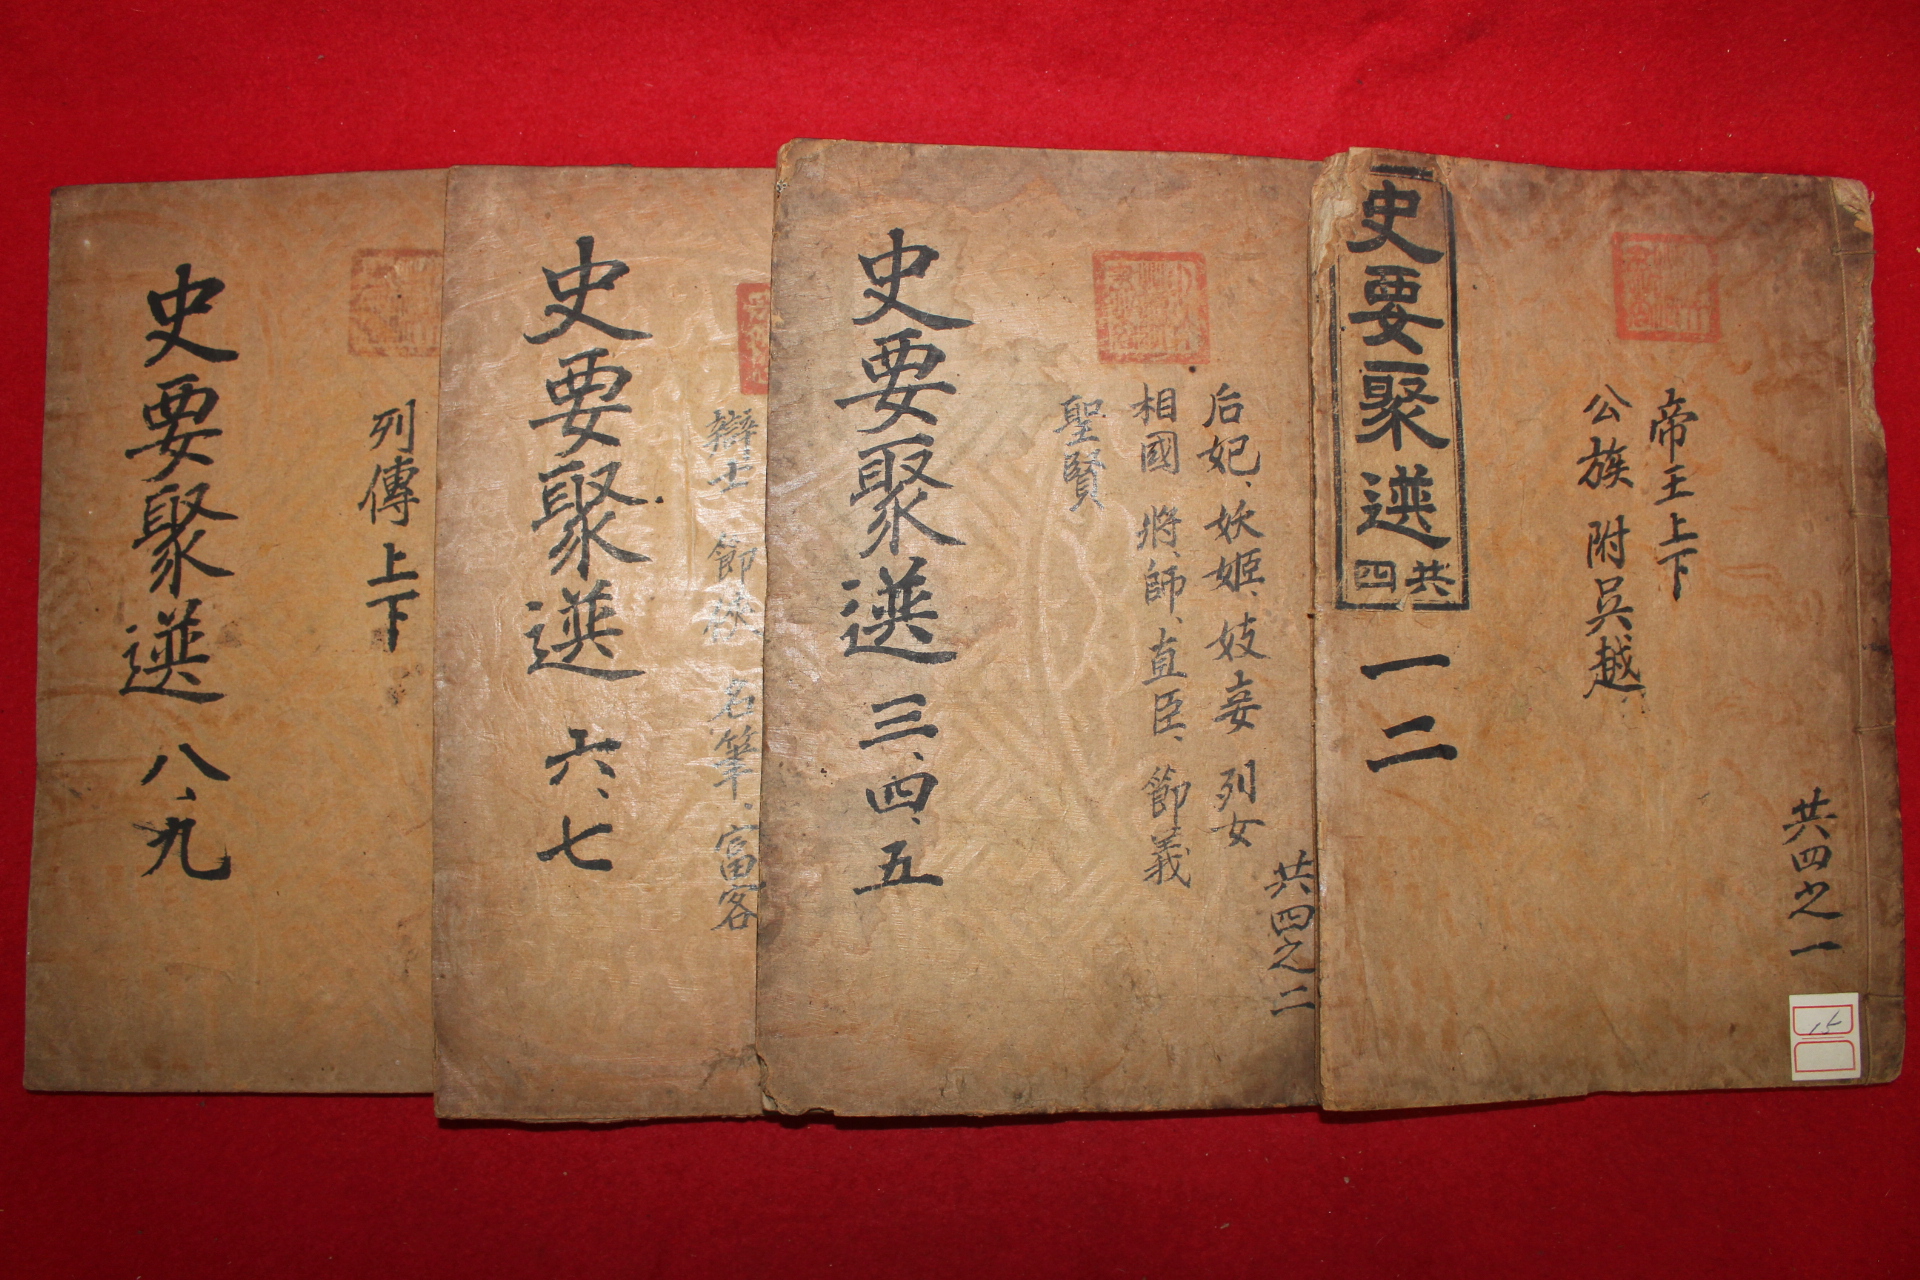 史要聚選
共四
一二
帝王上下
公族 附吳越
共四之一
15
史要聚選 三、四、五
后妃、妖姬、妓妾 列女
相國 將、師、直臣、節義
聖賢
共四之二
史要聚選 六、七
辯士 節俠 名筆、富客
史要聚選 八、九
列傳 上下